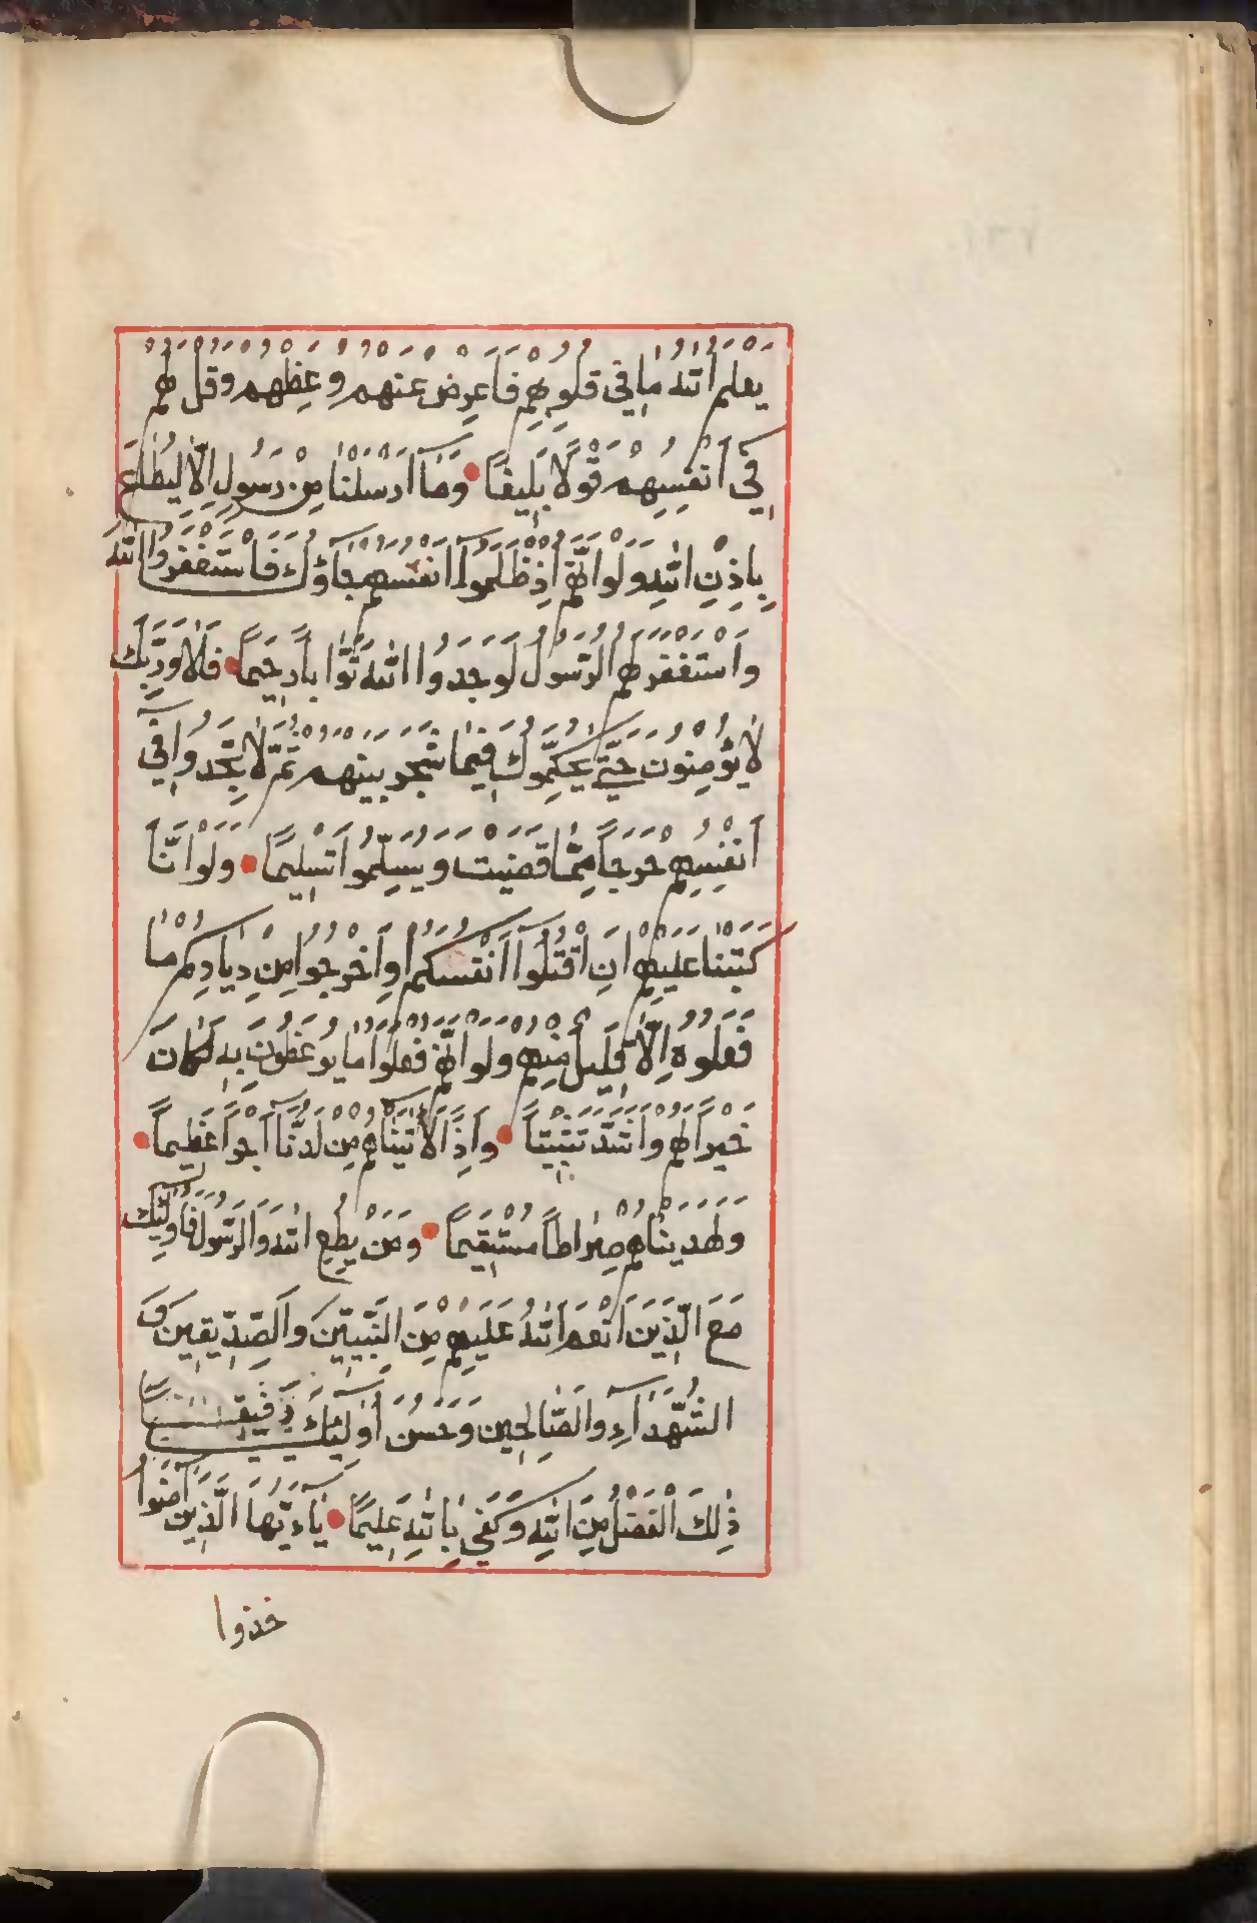 يَعْلَمُ اللّٰهُ مَا فِي قُلُوبِهِمْ فَاَعْرِضْ عَنْهُمْ وَعِظْهُمْ وَقُلْ لَهُمْ
فِي اَنْفُسِهِمْ قَوْلًا بَلِيغًا وَمَا اَرْسَلْنَا مِنْ رَسُولٍ اِلَّا لِيُطَاعَ
بِاِذْنِ اللّٰهِ وَلَوْ اَنَّهُمْ اِذْ ظَلَمُوا اَنْفُسَهُمْ جَاؤُكَ فَاسْتَغْفَرُوا اللّٰهَ
وَاسْتَغْفَرَ لَهُمُ الرَّسُولُ لَوَجَدُوا اللّٰهَ تَوَّابًا رَحِيمًا فَلَا وَرَبِّكَ
لَا يُؤْمِنُونَ حَتّٰى يُحَكِّمُوكَ فِيمَا شَجَرَ بَيْنَهُمْ ثُمَّ لَا يَجِدُوا فِي
اَنْفُسِهِمْ حَرَجًا مِمَّا قَضَيْتَ وَيُسَلِّمُوا تَسْلِيمًا وَلَوْ اَنَّا
كَتَبْنَا عَلَيْهِمْ اَنِ اقْتُلُوا اَنْفُسَكُمْ اَوِ اخْرُجُوا مِنْ دِيَارِكُمْ مَا
فَعَلُوهُ اِلَّا قَلِيلٌ مِنْهُمْ وَلَوْ اَنَّهُمْ فَعَلُوا مَا يُوعَظُونَ بِهِ لَكَانَ
خَيْرًا لَهُمْ وَاَشَدَّ تَثْبِيتًا وَاِذًا لَاٰتَيْنَاهُمْ مِنْ لَدُنَّا اَجْرًا عَظِيمًا
وَلَهَدَيْنَاهُمْ صِرَاطًا مُسْتَقِيمًا وَمَنْ يُطِعِ اللّٰهَ وَالرَّسُولَ فَاُولٰئِكَ
مَعَ الَّذِينَ اَنْعَمَ اللّٰهُ عَلَيْهِمْ مِنَ النَّبِيِّينَ وَالصِّدِّيقِينَ وَ
الشُّهَدَاءِ وَالصَّالِحِينَ وَحَسُنَ اُولٰئِكَ رَفِيقًا
ذٰلِكَ الْفَضْلُ مِنَ اللّٰهِ وَكَفٰى بِاللّٰهِ عَلِيمًا يَاءَيُّهَا الَّذِينَ اٰمَنُوا
خذوا